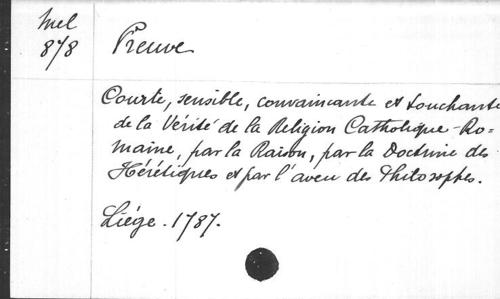 Mel
878
Preuve
Courte, sensible, convaincante et touchante
de la Vérité de la Religion Catholique-Ro-
maine, par la Raison, par la Doctrine des
Hérétiques et par l'aveu des Philosophes.
Liége. 1787.